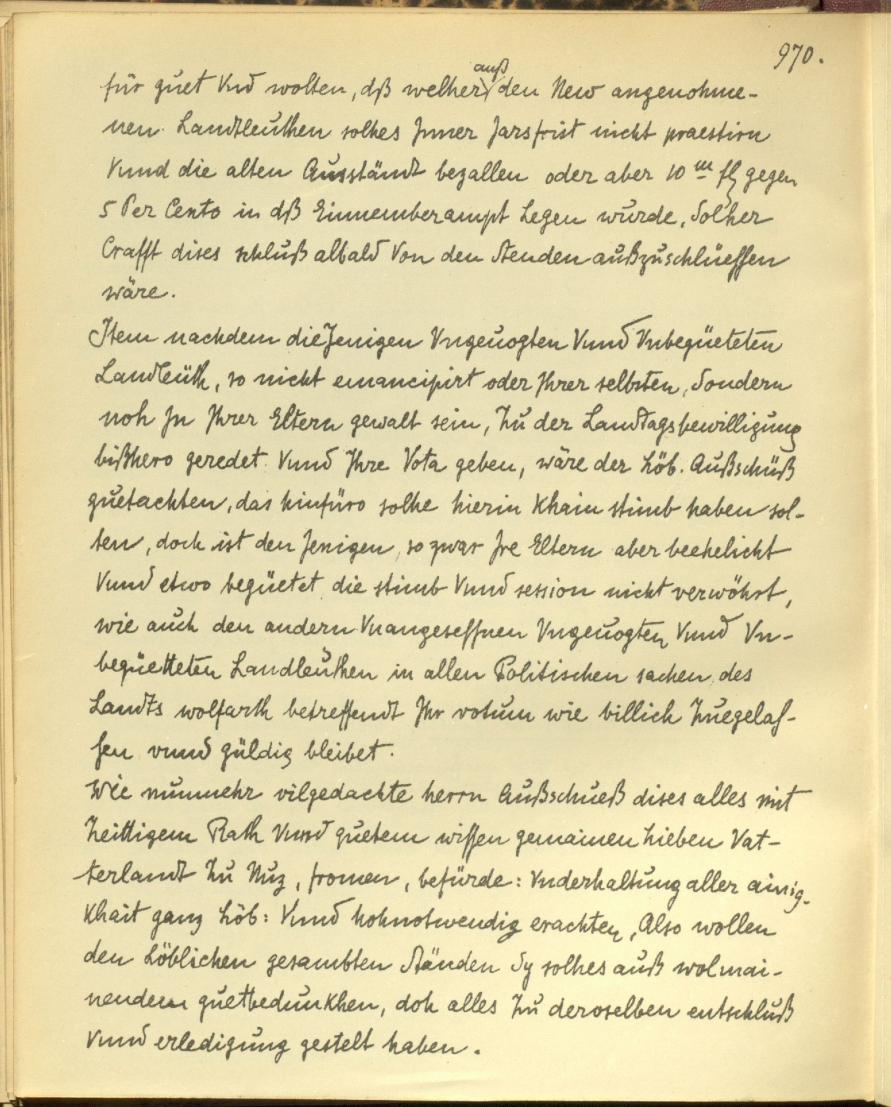 970.
auß
für guet Vnd wolten, dß welher den New angenohme-
nen Landtleuthen solhes Inner Jarsfrist nicht praestirn
Vnnd die alten Ausständt bezallen oder aber 10 m fl gegen
5 Per Cento in dß Einnemberampt Legen wurde, Solher
Crafft dises schluß albald Von den Stenden außzuschlüessen
wäre.
Item nachdem die Jenigen Vngeuogten Vnnd Vnbegüeteten
Landleüth, so nicht emancipirt oder Ihrer selbsten, Sondern
noh In Ihrer Eltern gewalt sein, Zu der Landtagsbewilligung
bißhero geredet Vnnd Ihre Vota geben, wäre der Löb. Außschüß
guetachten, das hinfüro solhe hierin Khain stimb haben sol-
ten, doch ist den Jenigen, so zwar Ire Eltern aber beehelicht
Vnnd etwo begüetet die stimb Vnnd session nicht verwöhrt,
wie auch den andern Vnangesessnen Vngeuogten Vnnd Vn-
begüetteten Landleuthen in allen Politischen sachen des
Landts wolfarth betreffendt Ihr votum wie billich Zuegelas-
sen vnnd güldig bleibet.
Wie nunmehr vilgedachte herrn Außschueß dises alles mit
Zeittigem Rath Vnnd guetem wissen gemainen Lieben Vat-
terlandt Zu Nuz, fromen, befürde: Vnderhaltung aller ainig-
Khait ganz Löb: Vnnd hohnotwendig erachten, Also wollen
den Löblichen gesambten Ständen Sy solhes auß wolmai-
nendem guetbedunkhen, doh alles Zu deroselben entschluß
Vnnd erledigung gestelt haben.